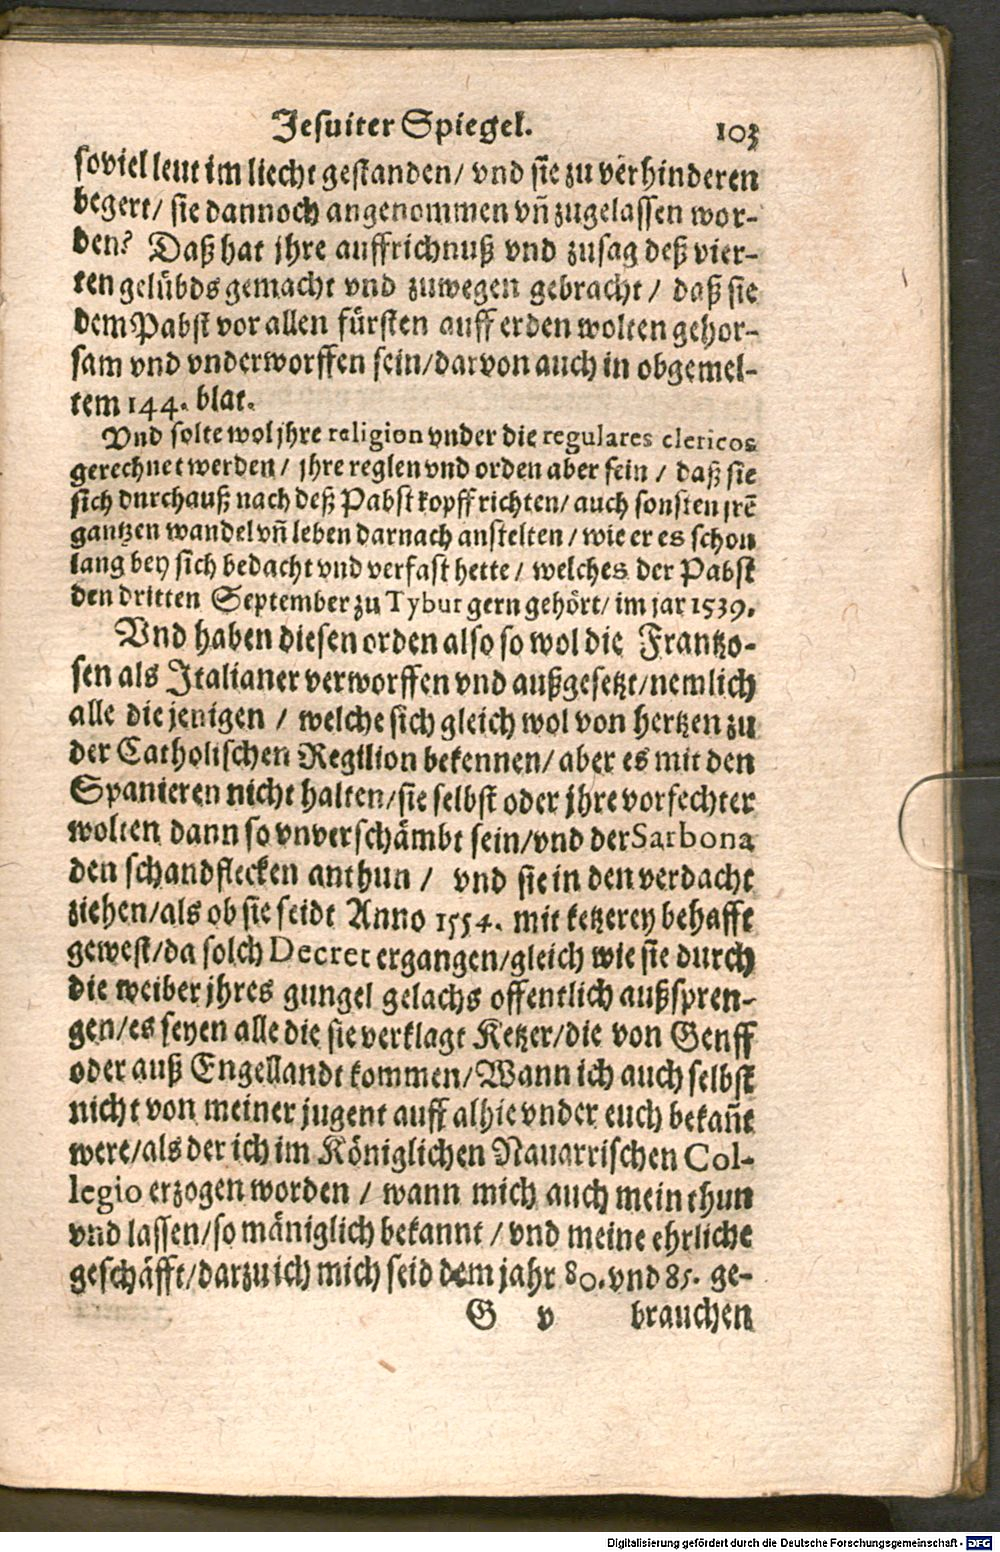 Jesuiter Spiegel. 103
soviel leut im liecht gestanden/ vnd sie zu verhinderen
begert/ sie dannoch angenommen vñ zugelassen wor-
den? Daß hat jhre auffrichnuß vnd zusag deß vier-
ten gelübds gemacht vnd zuwegen gebracht/ daß sie
dem Pabst vor allen fürsten auff erden wolten gehor-
sam vnd vnderworffen sein/darvon auch in obgemel-
tem 144. blat.
Vnd solte wol jhre religion vnder die regulares clericos
gerechnet werden/ jhre reglen vnd orden aber sein/ daß sie
sich durchauß nach deß Pabst kopff richten/ auch sonsten jrē
gantzen wandel vñ leben darnach anstelten/ wie er es schon
lang bey sich bedacht vnd verfast hette/ welches der Pabst
den dritten September zu Tybur gern gehört/ im jar 1539.
Vnd haben diesen orden also so wol die Frantzo-
sen als Italianer verworffen vnd außgesetzt/nemlich
alle die jenigen/ welche sich gleich wol von hertzen zu
der Catholischen Regilion bekennen/ aber es mit den
Spanieren nicht halten/sie selbst oder jhre vorfechter
wolten dann so vnverschämbt sein/vnd der Sarbona
den schandflecken anthun/ vnd sie in den verdacht
ziehen/als ob sie seidt Anno 1554. mit ketzerey behafft
gewest/da solch Decret ergangen/gleich wie sie durch
die weiber jhres gungel gelachs offentlich außspren-
gen/es seyen alle die sie verklagt Ketzer/die von Genff
oder auß Engellandt kommen/Wann ich auch selbst
nicht von meiner jugent auff alhie vnder euch bekañt
were/als der ich im Königlichen Nauarrischen Col-
legio erzogen worden/ wann mich auch mein thun
vnd lassen/so mäniglich bekannt/ vnd meine ehrliche
geschäfft/darzu ich mich seid dem jahr 80. vnd 85. ge-
G v brauchen
Digitalisierung gefördert durch die Deutsche Forschungsgemeinschaft - DFG